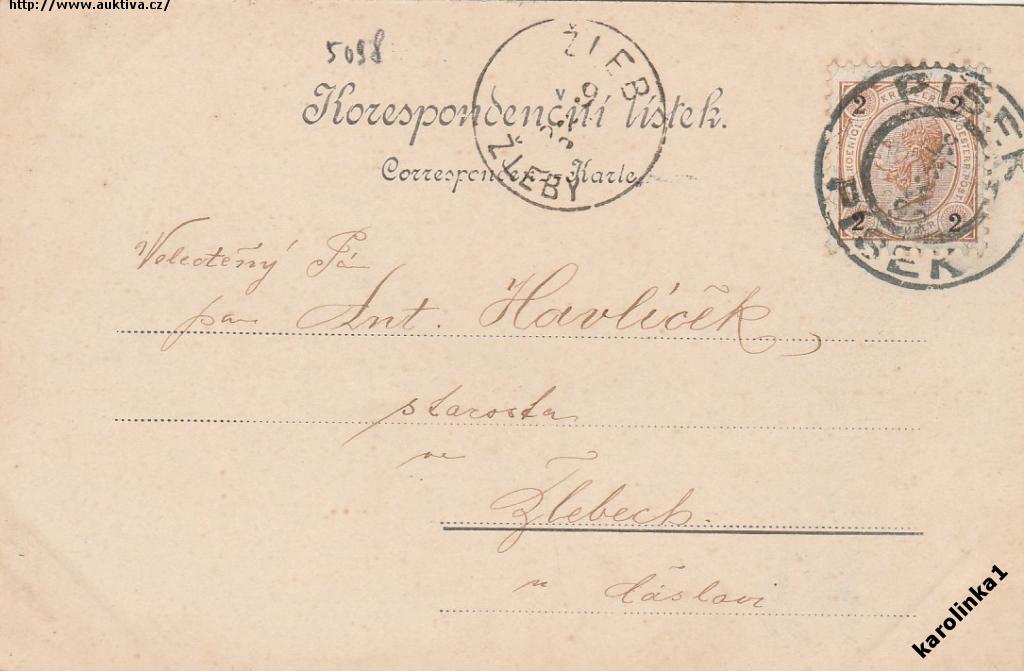 http://www.auktiva.cz/
5098
ŽLEBY
ŽLEBY
Korespondenční lístek.
Correspondenz-Karte
2 2
2 2
PISEK
PÍSEK
Velectěný Pán
pan Ant. Havlíček,
starosta
ve
Žlebech.
u Čáslavi
karolinka1